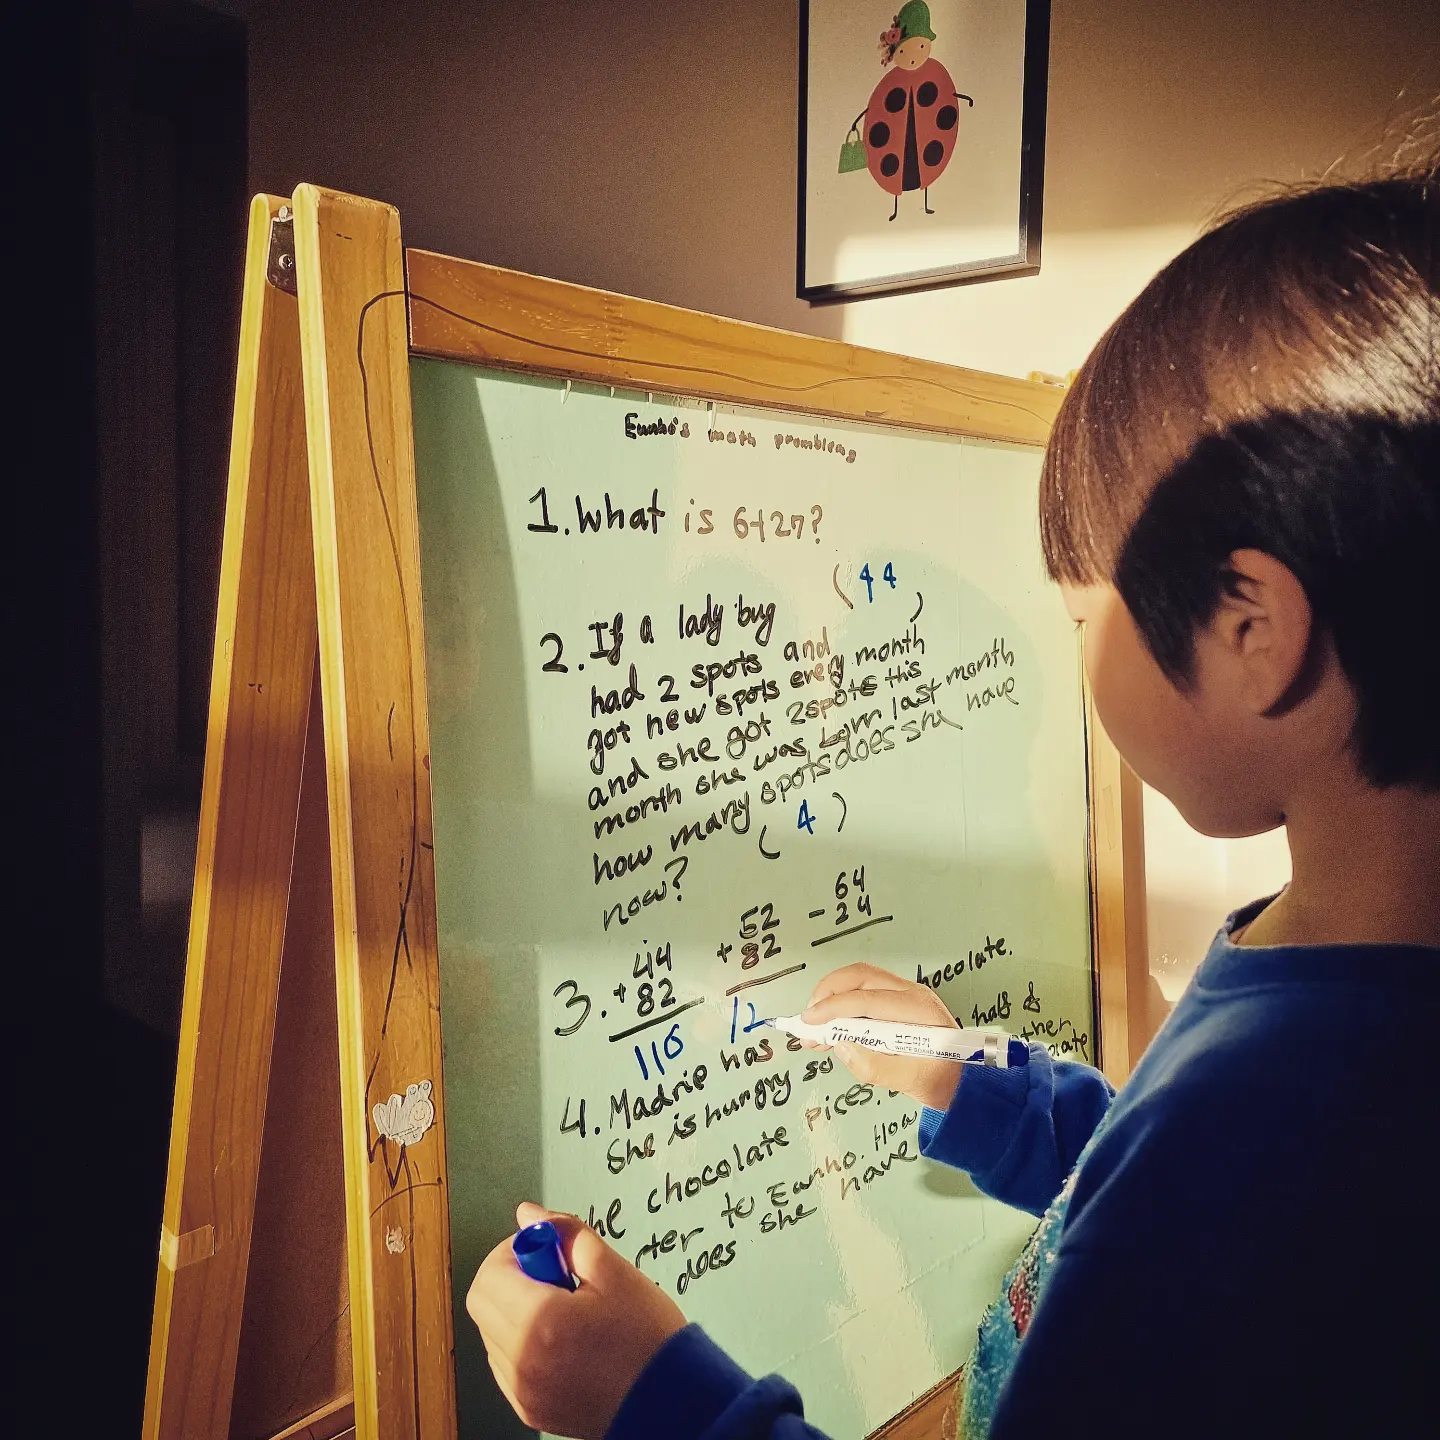 Eunho's math prombleas
1. What is 6+27?
(44)
2. If a lady bug
had 2 spots and
got new spots every month
and she got 2 spots this
month she was born last month
how many spots does she have
now?
(4)
3. 44 52 64
+ 82 + 82 - 24
116 12
4. Madrie has hocolate.
She is hungry so half &
he chocolate pices. other
rter to Eunho. How
does she have
Monhem 보드마카
WHITE BOARD MARKER